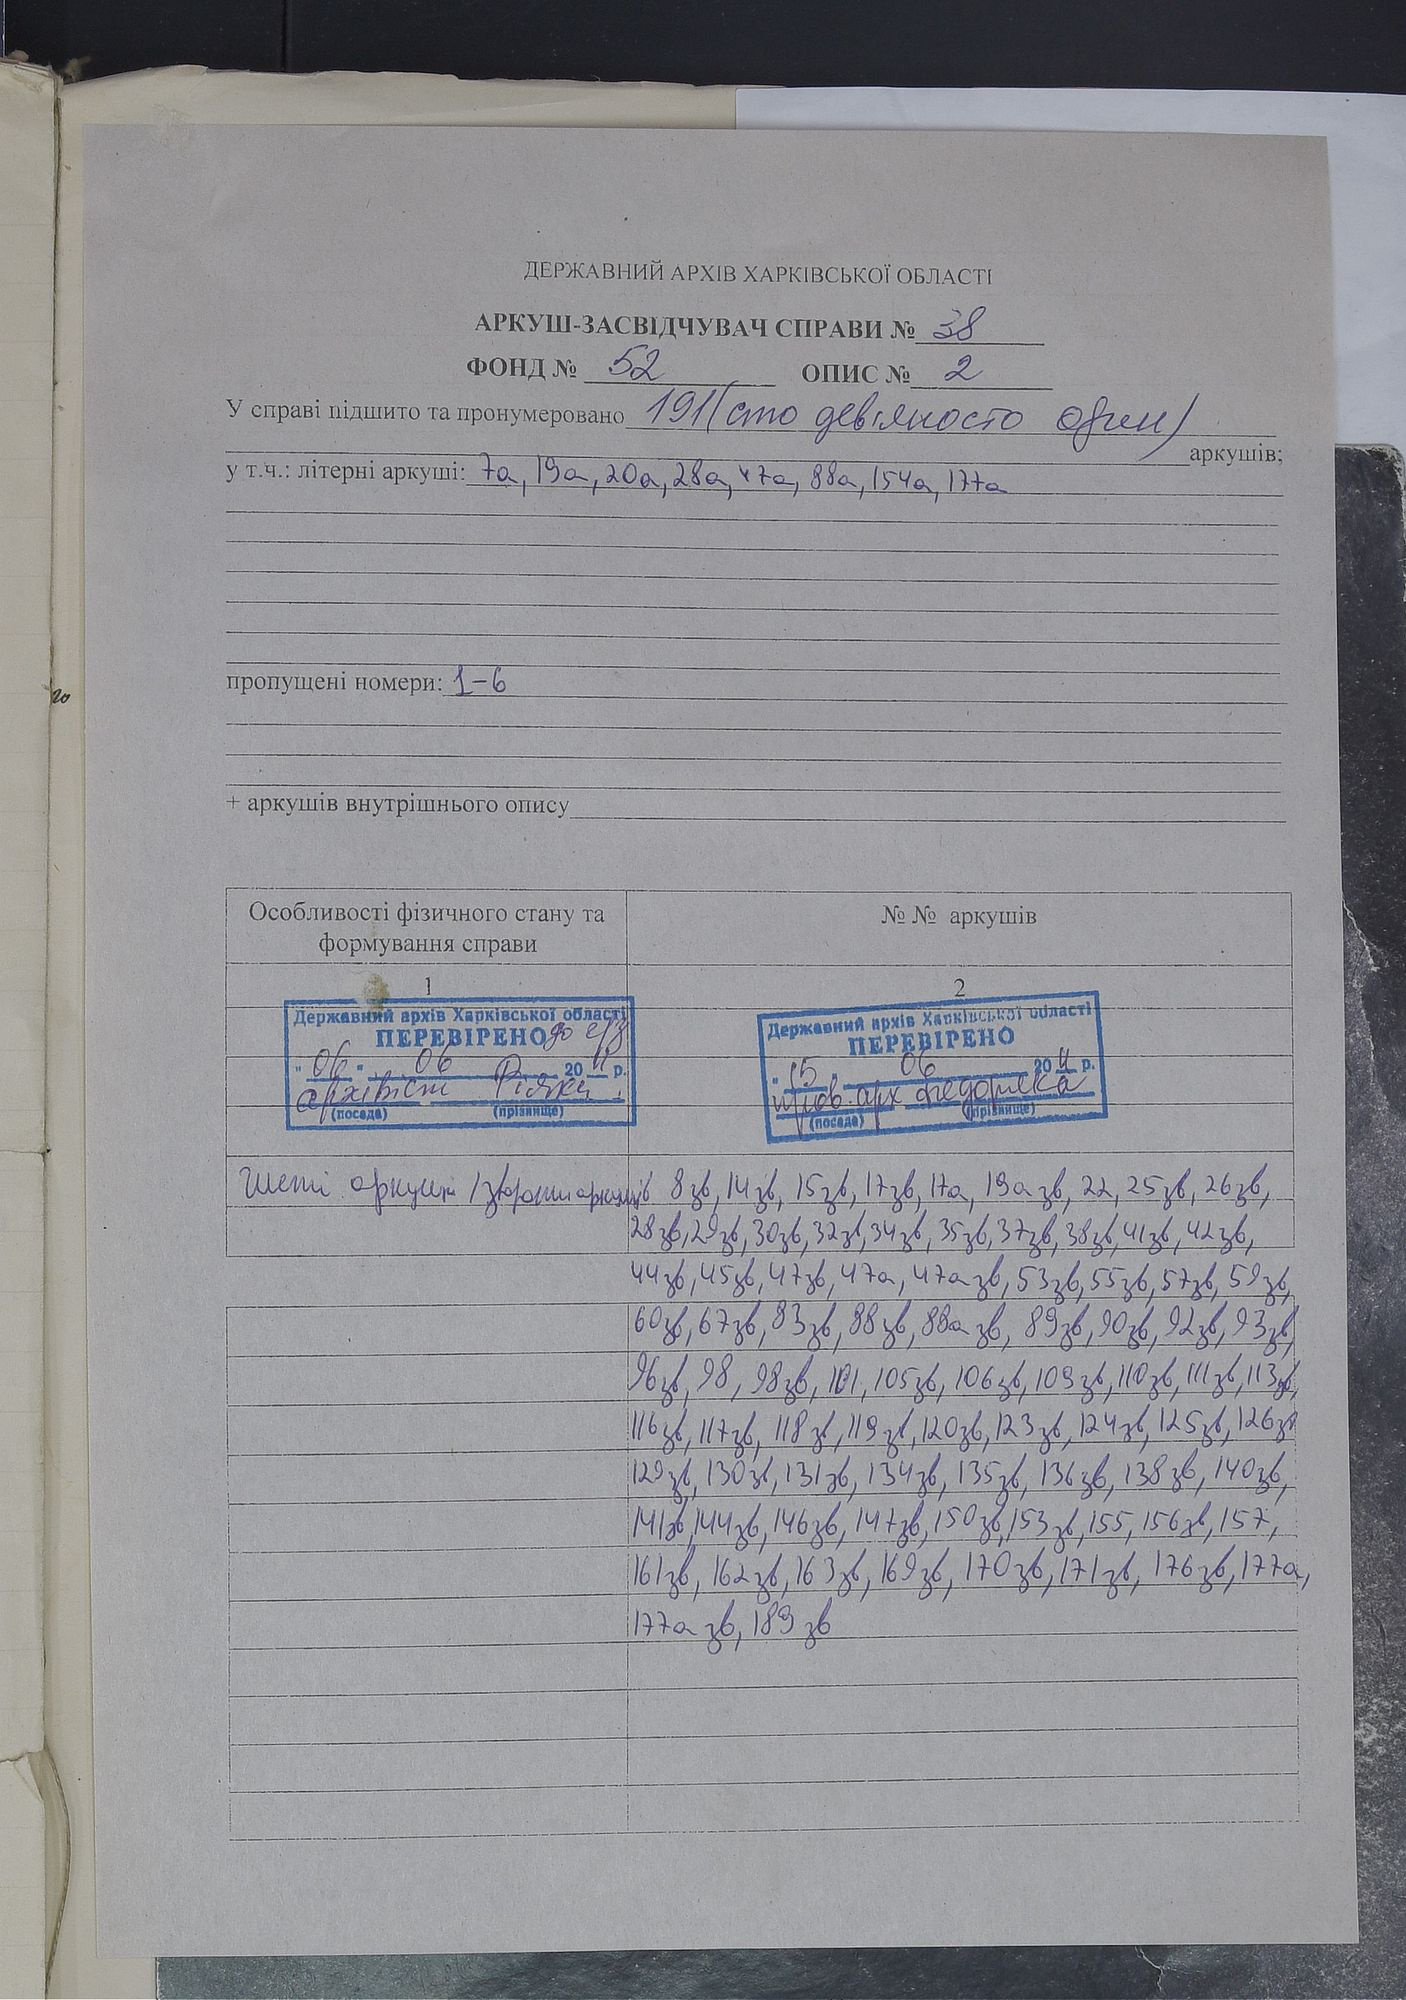 ДЕРЖАВНИЙ АРХІВ ХАРКІВСЬКОЇ ОБЛАСТІ
АРКУШ-ЗАСВІДЧУВАЧ СПРАВИ № 38
ФОНД № 52 ОПИС № 2
У справі підшито та пронумеровано 191 (сто дев'яносто один)
аркушів;
у т.ч.: літерні аркуші: 7а, 19а, 20а, 28а, 47а, 88а, 154а, 177а
пропущені номери: 1-6
+ аркушів внутрішнього опису
Особливості фізичного стану та формування справи
№ № аркушів
1
2
Державний архів Харківської області
ПЕРЕВІРЕНО до
"06" 06 2011 р.
архівіст
(посада) (прізвище)
Державний архів Харківської області
ПЕРЕВІРЕНО
"15" 06 2011 р.
пров. арх
(посада) (прізвище)
Чисті аркуші / звороти аркушів 8зв, 14зв, 15зв, 17зв, 17а, 19а зв, 22, 25зв, 26зв,
28зв, 29зв, 30зв, 32зв, 34зв, 35зв, 37зв, 38зв, 41зв, 42зв,
44зв, 45зв, 47зв, 47а, 47а зв, 53зв, 55зв, 57зв, 59зв,
60зв, 67зв, 83зв, 88зв, 88а зв, 89зв, 90зв, 92зв, 93зв,
96зв, 98, 98зв, 101, 105зв, 106зв, 109зв, 110зв, 111зв, 113зв,
116зв, 117зв, 118зв, 119зв, 120зв, 123зв, 124зв, 125зв, 126зв
129зв, 130зв, 131зв, 134зв, 135зв, 136зв, 138зв, 140зв,
141зв, 144зв, 146зв, 147зв, 150зв, 153зв, 155, 156зв, 157,
161зв, 162зв, 163зв, 169зв, 170зв, 171зв, 176зв, 177а,
177а зв, 189зв